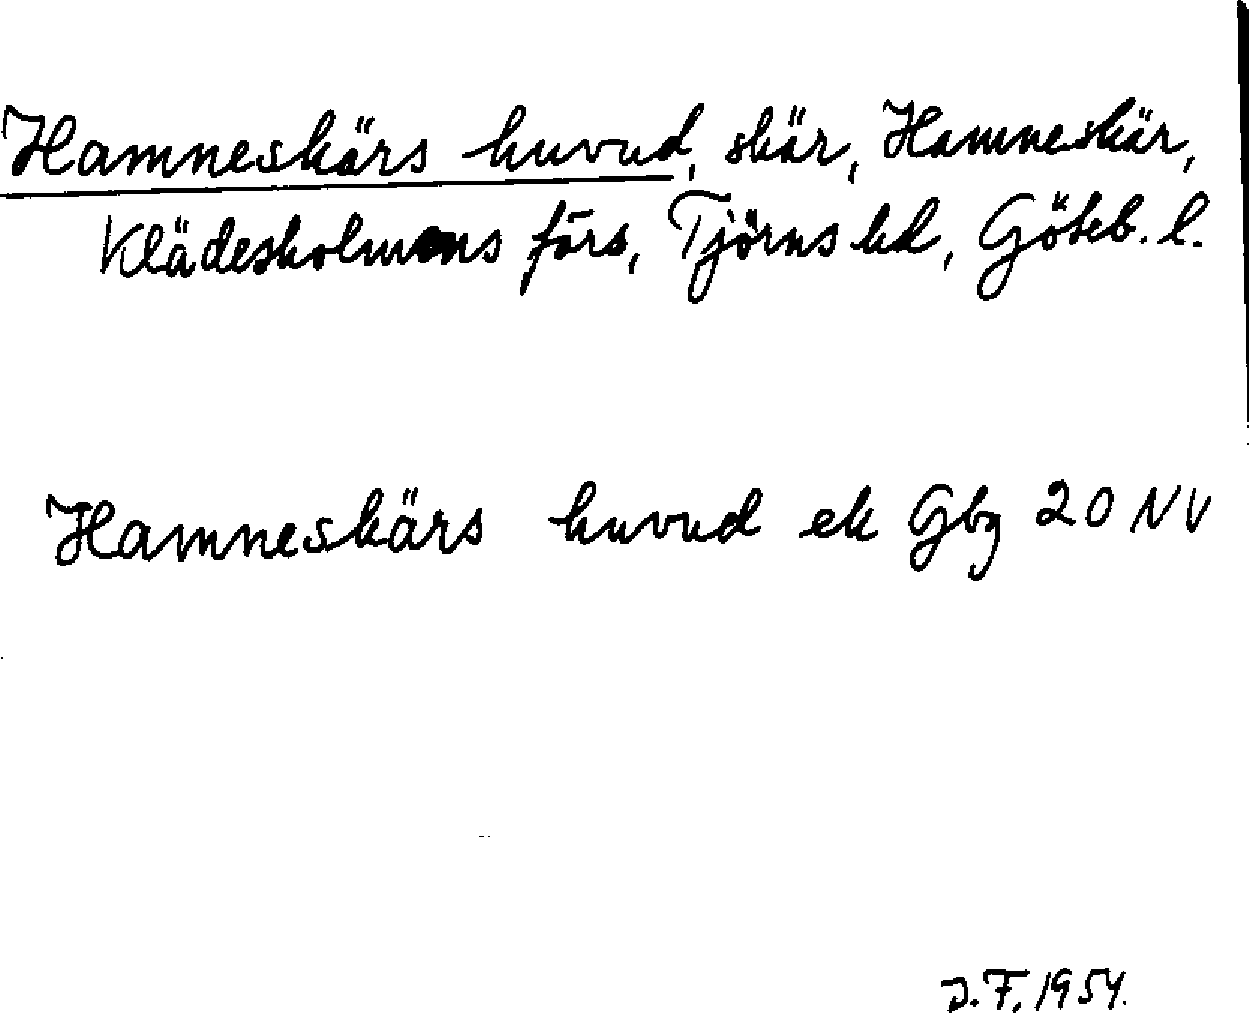 Hamneskärs huvud, skär, Hamneskär,
Klädesholmens förs, Tjörns hd, Göteb. l.
Hamneskärs huvud ek Gbg 20 NV
J.F. 1954.